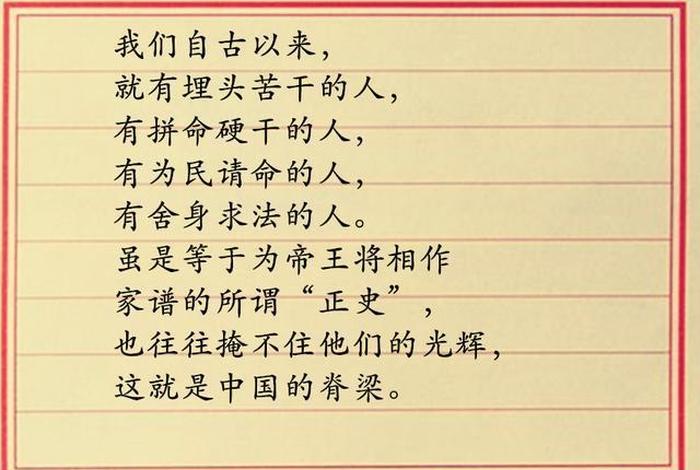 我们自古以来，
就有埋头苦干的人，
有拼命硬干的人，
有为民请命的人，
有舍身求法的人。
虽是等于为帝王将相作
家谱的所谓“正史”，
也往往掩不住他们的光辉，
这就是中国的脊梁。